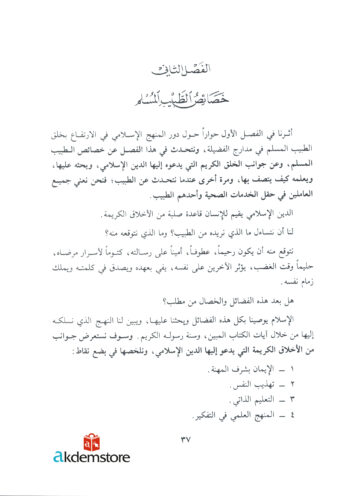 الفصل الثاني
خصائص الطبيب المسلم
أثرنا في الفصل الأول حواراً حول دور المنهج الإسلامي في الارتفاع بخلق
الطبيب المسلم في مدارج الفضيلة، ونتحدث في هذا الفصل عن خصائص الطبيب
المسلم، وعن جوانب الخلق الكريم التي يدعوه إليها الدين الإسلامي، ويحثه عليها،
ويعلمه كيف يتصف بها، ومرة أخرى عندما نتحدث عن الطبيب؛ فنحن نعني جميع
العاملين في حقل الخدمات الصحية وأحدهم الطبيب.
الدين الإسلامي يقيم للإنسان قاعدة صلبة من الأخلاق الكريمة.
لنا أن نتساءل ما الذي نريده من الطبيب؟ وما الذي نتوقعه منه؟
نتوقع منه أن يكون رحيماً، عطوفاً، أميناً على رسالته، كتوماً لأسرار مرضاه،
حليماً وقت الغضب، يؤثر الآخرين على نفسه، يفي بعهده ويصدق في كلمته ويملك
زمام نفسه.
هل بعد هذه الفضائل والخصال من مطلب؟
الإسلام يوصينا بكل هذه الفضائل ويحثنا عليها، ويبين لنا النهج الذي نسلكه
إليها من خلال آيات الكتاب المبين، وسنة رسوله الكريم. وسوف نستعرض جوانب
من الأخلاق الكريمة التي يدعو إليها الدين الإسلامي، ونلخصها في بضع نقاط:
١ ــ الإيمان بشرف المهنة.
٢ ــ تهذيب النفس.
٣ ــ التعليم الذاتي.
٤ ــ المنهج العلمي في التفكير.
٣٧
akdemstore